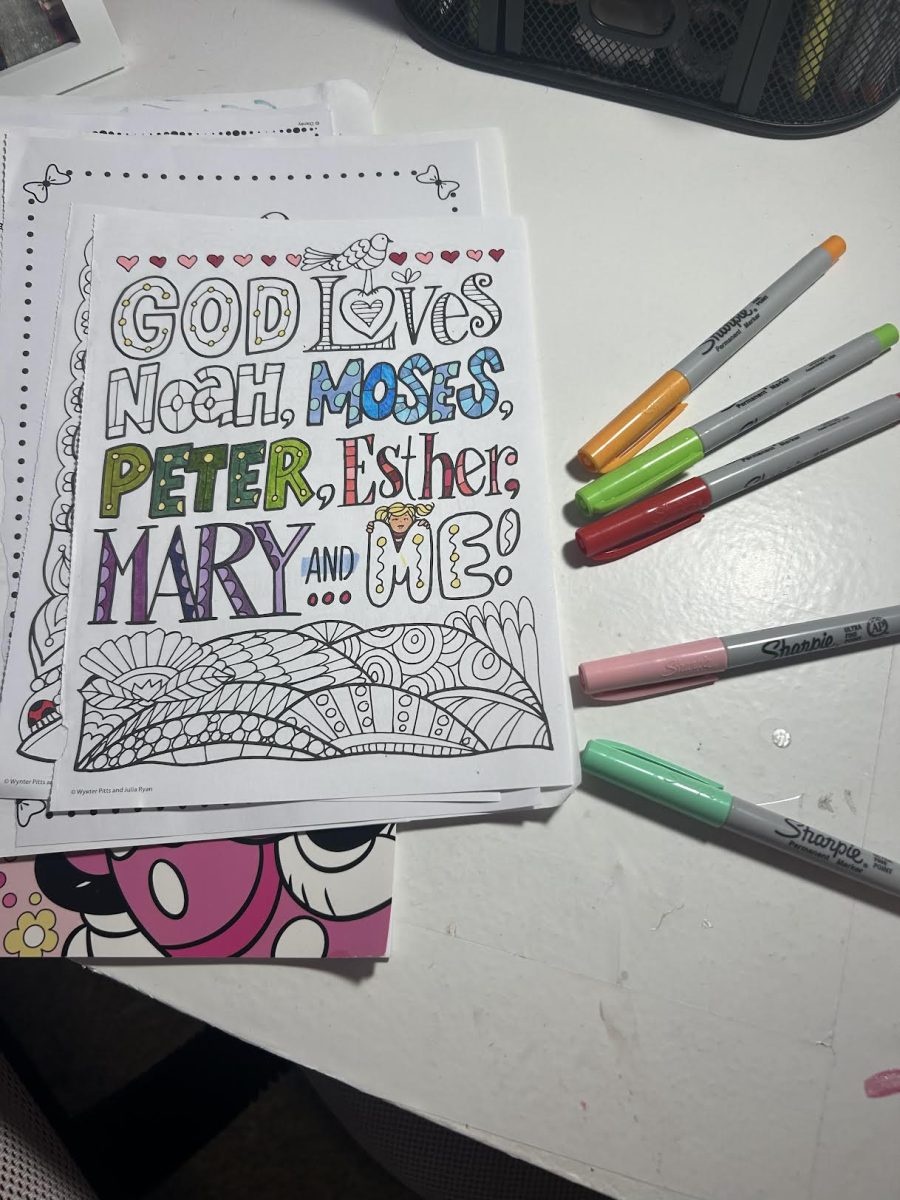 © Disney
GOD Loves
Noah, MOSES,
PETER, Esther,
MARY AND ME!
© Wynter Pitts and Julia Ryan
© Wynter Pitts an
Sharpie
Permanent Marker
Permanent Marker
Permanent Marker
Sharpie
Sharpie
ULTRA
FINE POINT
AP
Sharpie
Permanent Marker
FINE
POINT